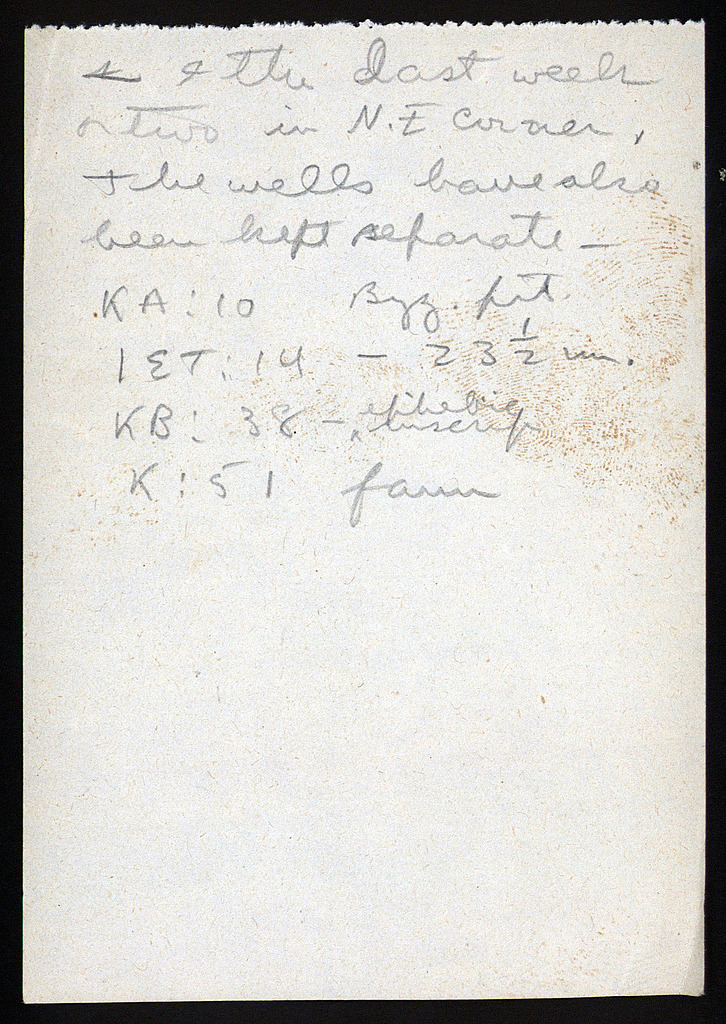 & the last week
or two in N.E corner,
The wells have also
been kept separate –
KA: 10 Byz. pit.
ΙΣΤ: 14 – 23 1/2 m.
KB: 38 – ephebic
inscrip
K: 51 farm